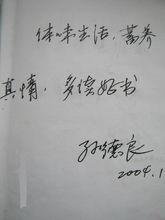 体味生活，蓄养
真情，多读好书
孙德良
2004.1